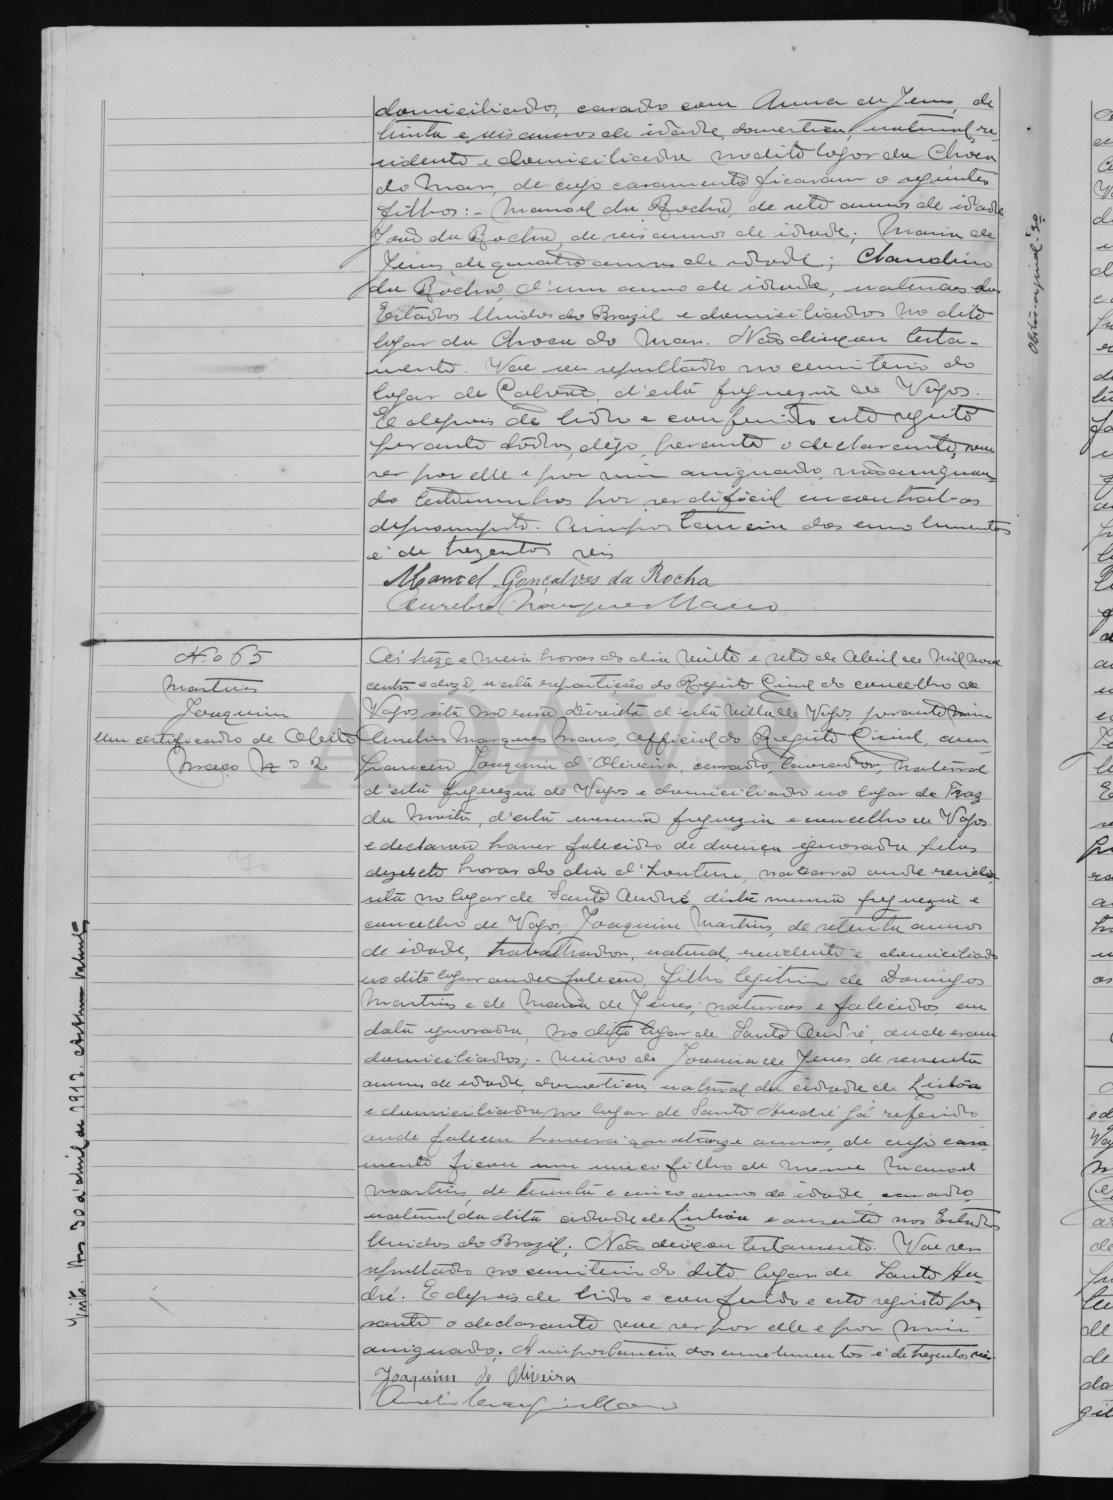 domiciliados, casado com Anna de Jesus, de
trinta e seis annos de idade, domestica, natural, re-
sidente e domiciliada no dito logar da Choca
do Mar, de cujo casamento ficaram o seguintes
filhos: - Manoel da Rocha, de sete annos de idade
João da Rocha, de seis annos de idade; Maria de
Jesus, de quatro annos de idade; Claudino
da Rocha, d'um anno de idade, naturaes dos
Estados Unidos do Brazil e domiciliados no dito
logar da Choca do Mar. Não deixou testa-
mento. Vae ser sepultado no cemiterio do
logar de Calvão, d'esta freguezia de Vagos.
E depois de lido e conferido este registo
perante todos, digo, perante o declarante, vae
ser por elle e por mim assignado, não assignan-
do testemunhas por ser dificil encontral-as
de prompto. A importancia dos emolumentos
é de trezentos reis
Manoel Gonçalves da Rocha
Aurelio Marques Mano
N.o 65
Martins
Joaquim
Um certificado de Obito
Maço N.o 2
70
Ás treze e meia horas do dia vinte e sete de Abril de mil nove
centos e doze, n'esta repartição do Registo Civil do concelho de
Vagos, sita na rua Direita d'esta Villa de Vagos, perante mim
Aurelio Marques Mano, Official do Registo Civil, com-
pareceu Joaquim d'Oliveira, casado, lavrador, natural
d'esta freguezia de Vagos e domiciliado no logar da Fraz
da Moita, d'esta mesma freguezia e concelho de Vagos
e declarou haver falecido de doença ignorada pelas
dezesete horas do dia d'hontem, na casa onde residia
sita no logar de Santo André d'esta mesma freguezia e
concelho de Vagos, Joaquim Martins, de setenta annos
de idade, trabalhador, natural, residente e domiciliado
no dito logar onde faleceu, filho legitimo de Domingos
Martins e de Maria de Jesus, naturaes e falecidos em
data ignorada, no dito logar de Santo André, onde eram
domiciliados; - viuvo de Joanna de Jesus, de sessenta
annos de idade, domestica, natural da cidade de Lisbôa
e domiciliada no logar de Santo André já referido
onde faleceu haverá quatorze annos, de cujo casa-
mento ficou um unico filho de nome Manoel
Martins, de trinta e cinco annos de idade, casado,
natural da dita cidade de Lisbôa e ausente nos Estados
Unidos do Brazil. Não deixou testamento. Vae ser
sepultado no cemiterio do dito logar de Santo An-
dré. E depois de lido e conferido e este registo pe-
rante o declarante vae ser por elle e por mim
assignado. A importancia dos emolumentos é de trezentos reis
Joaquim de Oliveira
Aurelio Marques Mano
Visto. Aos 30 d'abril de 1912.
ADAVR